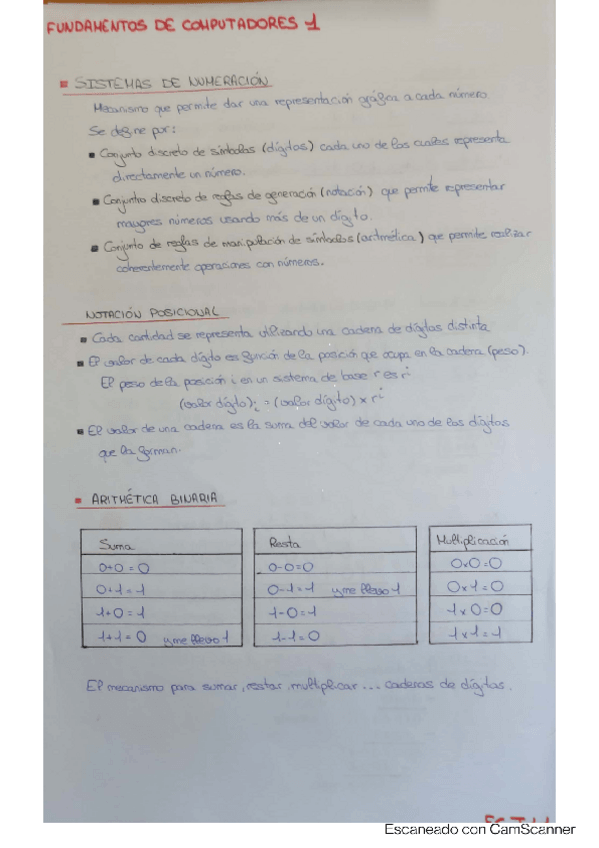 FUNDAMENTOS DE COMPUTADORES 1
SISTEMAS DE NUMERACIÓN
Mecanismo que permite dar una representación gráfica a cada número
Se define por:
Conjunto discreto de símbolos (dígitos) cada uno de los cuales representa
directamente un número.
Conjunto discreto de reglas de generación (notación) que permite representar
mayores números usando más de un dígito.
Conjunto de reglas de manipulación de símbolos (aritmética) que permite realizar
coherentemente operaciones con números.
NOTACIÓN POSICIONAL
Cada cantidad se representa utilizando una cadena de dígitos distinta
El valor de cada dígito es función de la posición que ocupa en la cadena (peso).
El peso de la posición i en un sistema de base r es rⁱ
(valor dígito)ᵢ = (valor dígito) x rⁱ
El valor de una cadena es la suma del valor de cada uno de los dígitos
que la forman.
ARITMÉTICA BINARIA
Suma
0+0=0
0+1=1
1+0=1
1+1=0 y me llevo 1
Resta
0-0=0
0-1=1 y me llevo 1
1-0=1
1-1=0
Multiplicación
0x0=0
0x1=0
1x0=0
1x1=1
El mecanismo para sumar, restar, multiplicar... cadenas de dígitos.
Escaneado con CamScanner